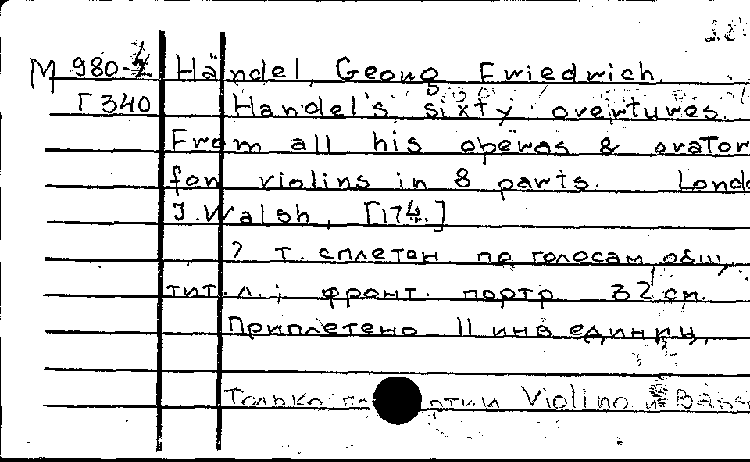 M 980-4 Händel, Georg Friedrich.
Г 340 Handel's sixty overtures.
From all his operas & orator
for violins in 8 parts. Londo
J. Walsh, [174.]
? т. сплетен по голосам, общ,
тит. л.; фронт. портр. 32 см.
Приплетено 11 инв единиц,
Только Violino и Basso